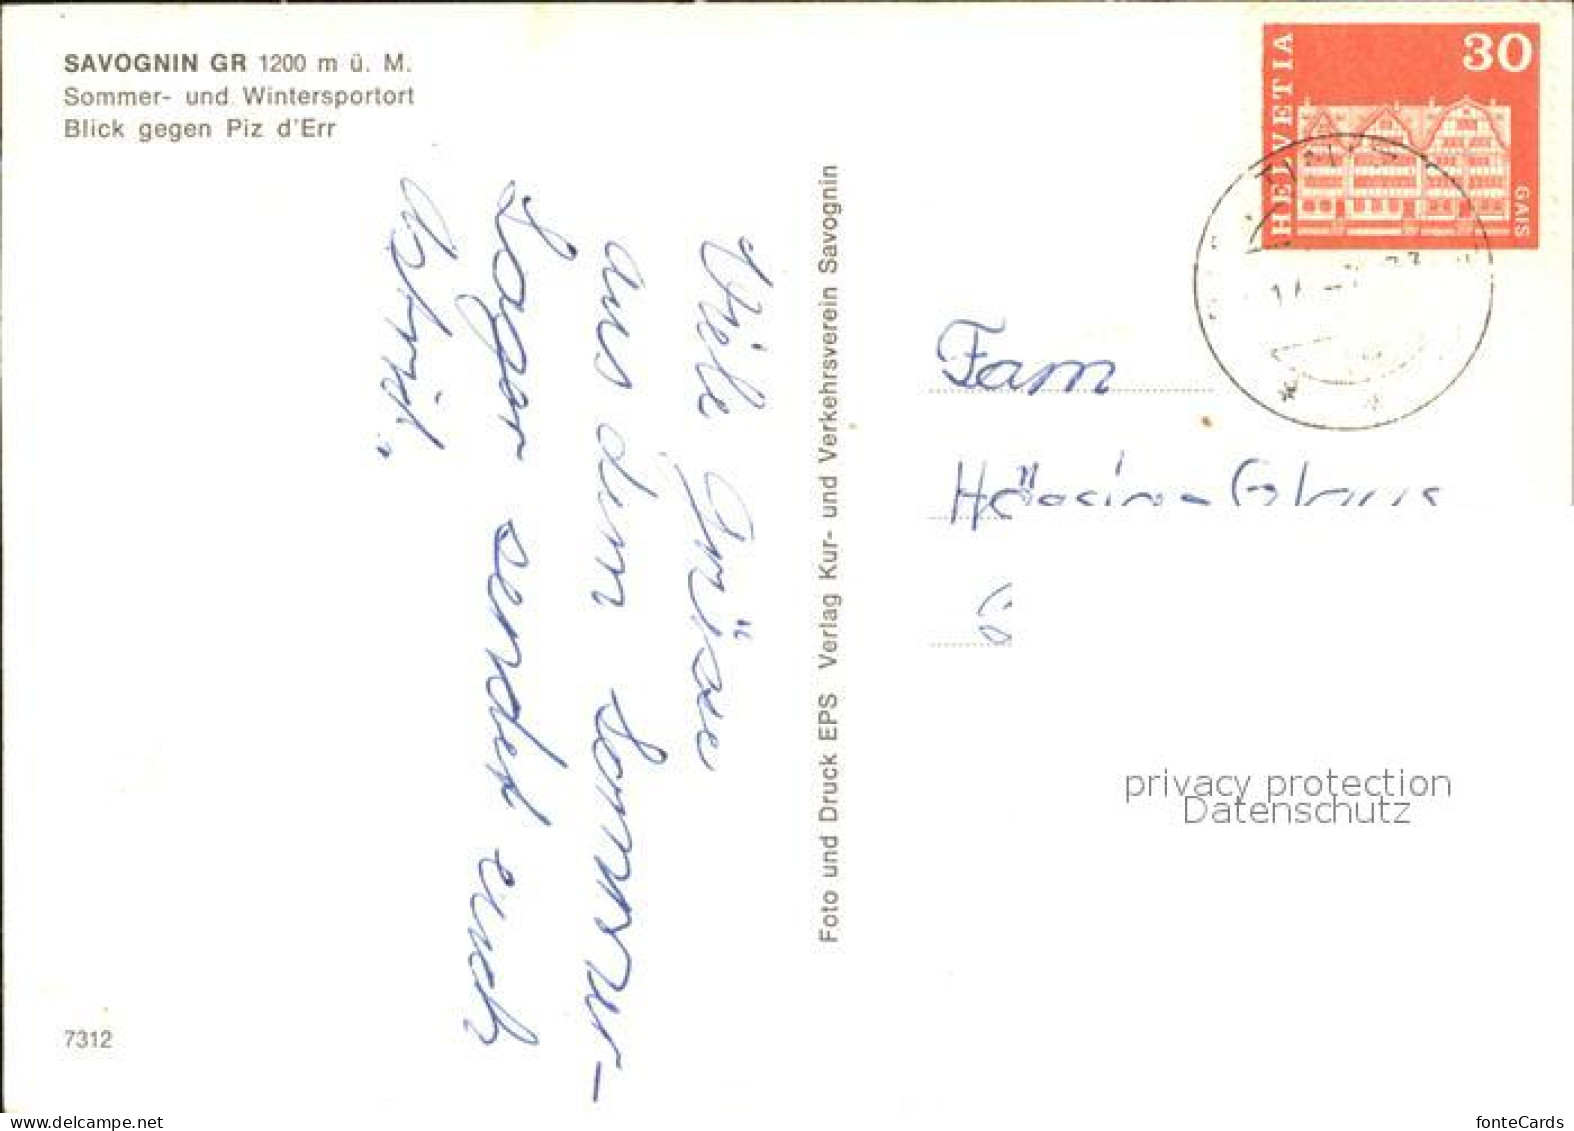 SAVOGNIN GR 1200 m ü. M.
Sommer- und Wintersportort
Blick gegen Piz d'Err
Viele Grüsse
aus dem Sommer-
Lager sendet euch
Astrid.
7312
Foto und Druck EPS Verlag Kur- und Verkehrsverein Savognin
HELVETIA
30
GAIS
Fam
privacy protection
Datenschutz
www.delcampe.net
tinymou
fonteCards